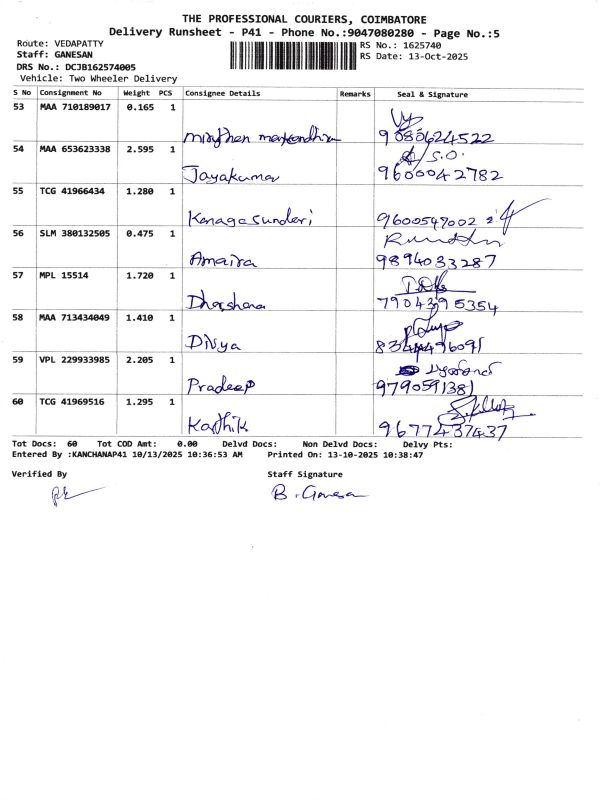 THE PROFESSIONAL COURIERS, COIMBATORE
Delivery Runsheet - P41 - Phone No.:9047080280 - Page No.:5
Route: VEDAPATTY
Staff: GANESAN
DRS No.: DCJB162574005
Vehicle: Two Wheeler Delivery
RS No.: 1625740
RS Date: 13-Oct-2025
S No Consignment No Weight PCS Consignee Details Remarks Seal & Signature
53 MAA 710189017 0.165 1
9080624522
54 MAA 653623338 2.595 1
S.O.
Jayakumar 9600042782
55 TCG 41966434 1.280 1
Kanagasunderi 9600547002
56 SLM 380132505 0.475 1
Amaira 9894033287
57 MPL 15514 1.720 1
Dharshana 7904395354
58 MAA 713434049 1.410 1
Divya
59 VPL 229933985 2.205 1
Pradeep 9790591381
60 TCG 41969516 1.295 1
Karthik 9677437437
Tot Docs: 60 Tot COD Amt: 0.00 Delvd Docs: Non Delvd Docs: Delvy Pts:
Entered By :KANCHANAP41 10/13/2025 10:36:53 AM Printed On: 13-10-2025 10:38:47
Verified By Staff Signature
B. Ganesa